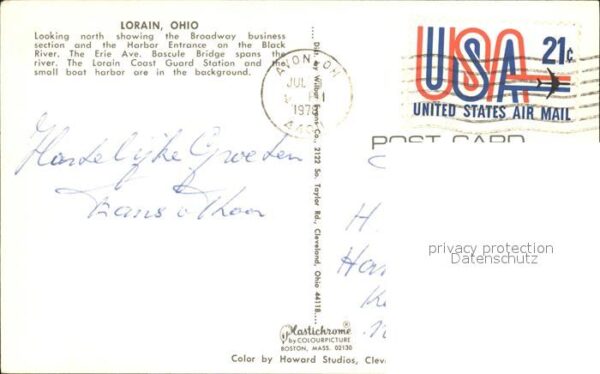 LORAIN, OHIO
Looking north showing the Broadway business
section and the Harbor Entrance on the Black
River. The Erie Ave. Bascule Bridge spans the
river. The Lorain Coast Guard Station and the
small boat harbor are in the background.
AVON, OH
JUL
1978
USA 21c
UNITED STATES AIR MAIL
POST CARD
Hartelijke Groeten
Frans & Thea
H.
Dist. by Wilbur Evans Co., 2122 So. Taylor Rd., Cleveland, Ohio 44118
privacy protection
Datenschutz
Plastichrome®
by COLOURPICTURE
BOSTON, MASS. 02130
Color by Howard Studios, Clev